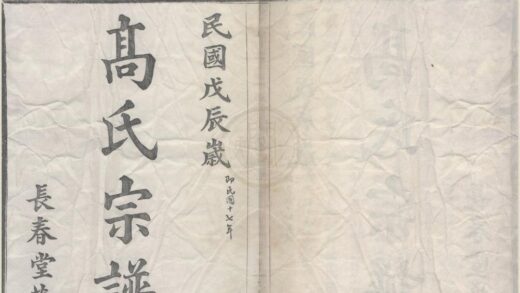 民國戊辰歲
即民國十七年
髙氏宗譜
長春堂